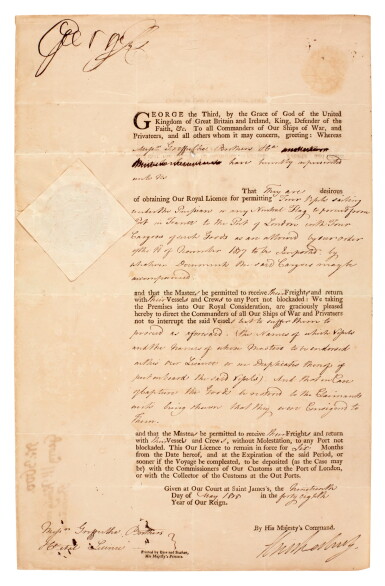 George R
GEORGE the Third, by the Grace of God of the United
Kingdom of Great Britain and Ireland, King, Defender of the
Faith, &c. To all Commanders of Our Ships of War, and
Privateers, and all others whom it may concern, greeting: Whereas
Brothers
have humbly represented
unto Us
That they are desirous
of obtaining Our Royal Licence for permitting Four Vessels sailing
under the or any Neutral Flag to proceed from
Port in France to the Port of London with Four
Cargoes of such Goods as are allowed by our order
of the 11 of November 1807 to be Imported by
whatever Documents the said Cargoes may be
accompanied
and that the Masters be permitted to receive their Freights and return
with their Vessels and Crews to any Port not blockaded: We taking
the Premises into Our Royal Consideration, are graciously pleased
hereby to direct the Commanders of all Our Ships of War and Privateers
not to interrupt the said Vessels but to suffer them to
proceed as aforesaid the Names of which Vessels
and the Names of whose Masters to be endorsed
on this our Licence or on Duplicates thereof
put on board the said Vessels; And that in Case
of Capture the Goods be restored to the Claimants
upon being shewn that they were Consigned to
them
and that the Masters be permitted to receive their Freights and return
with their Vessels and Crews, without Molestation, to any Port not
blockaded. This Our Licence to remain in force for Six Months
from the Date hereof, and at the Expiration of the said Period, or
sooner if the Voyage be compleated, to be deposited (as the Case may
be) with the Commissioners of Our Customs at the Port of London,
with the Collector of the Customs at the Out Ports.
Given at Our Court at Saint James's, the
Day of May 1808 in the forty eighth
Year of Our Reign.
By His Majesty's Command.
Brothers
Licence
Printed by Eyre and Strahan,
His Majesty's Printers.